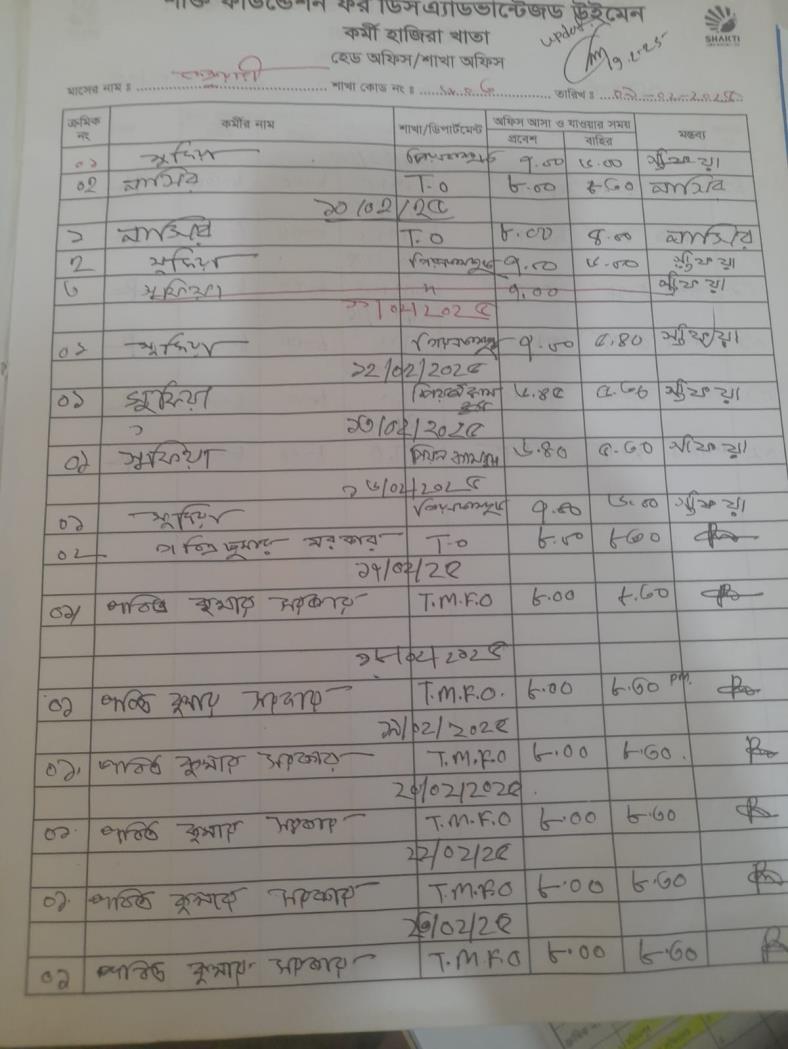 শক্তি ফাউন্ডেশন ফর ডিসএ্যাডভান্টেজড উইমেন
কর্মী হাজিরা খাতা
হেড অফিস/শাখা অফিস
update
9.2.25
SHAKTI
মাসের নাম ঃ ফেব্রুয়ারী শাখা কোড নং ঃ তারিখ ঃ ০৯-০২-২০২৫
ক্রমিক নং কর্মীর নাম শাখা/ডিপার্টমেন্ট অফিস আসা ও যাওয়ার সময় মন্তব্য
প্রবেশ বাহির
০১ সুফিয়া ৭.০০ ৬.০০ সুফিয়া
০২ নাসির T.O ৮.০০ ৮.৩০ নাসির
১০/০২/২৫
১ নাসির T.O ৮.০০ ৪.০০ নাসির
২ সুফিয়া ৭.০০ ৬.০০ সুফিয়া
৩ সুফিয়া " ৭.০০ সুফিয়া
১১/০২/২০২৫
০১ সুফিয়া ৭.০০ ৫.৪০ সুফিয়া
১২/০২/২০২৫
০১ সুফিয়া ৬.৪৫ ৫.৩০ সুফিয়া
১৩/০২/২০২৫
০১ সুফিয়া ৬.৪০ ৫.৩০ সুফিয়া
১৬/০২/২০২৫
০১ সুফিয়া ৭.০০ ৬.০০ সুফিয়া
০২ কুমার সরকার T.O ৮.০০ ৮.৩০
১৭/০২/২৫
০১ কুমার সরকার T.M.F.O ৮.০০ ৮.৩০
১৮/০২/২০২৫
০১ কুমার সরকার T.M.F.O. ৮.০০ ৮.৩০ pm.
১৯/০২/২০২৫
০১. কুমার সরকার T.M.F.O ৮.০০ ৮.৩০.
২০/০২/২০২৫.
০১. কুমার সরকার T.M.F.O ৮.০০ ৮.৩০
২২/০২/২৫
০১. কুমার সরকার T.M.F.O ৮.০০ ৮.৩০
২৩/০২/২৫
০১ কুমার সরকার T.M.F.O ৮.০০ ৮.৩০